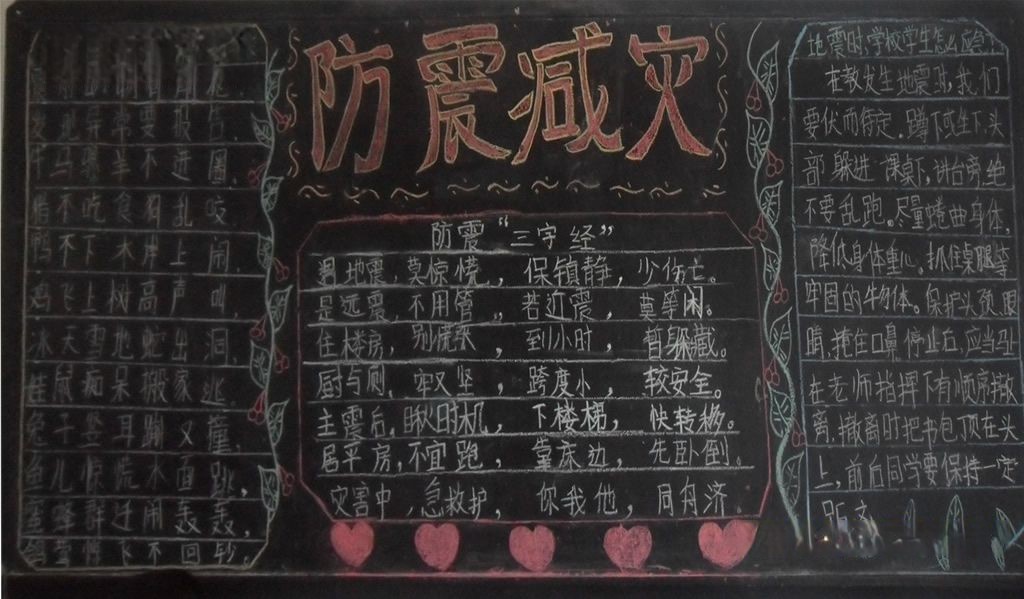 防震减灾
震前动物有前兆
发现异常要报告
牛马骡羊不进圈
猪不吃食狗乱咬
鸭不下水岸上闹
鸡飞上树高声叫
冰天雪地蛇出洞
鼠痴呆搬家逃
兔子竖耳蹦又撞
鱼儿惊慌水面跳
蜜蜂群迁闹轰轰
鸽不回
防震“三字经”
遇地震，莫惊慌，保镇静，少伤亡。
是远震，不用管，若近震，莫等闲。
住楼房，别慌张，到小时，暂躲藏。
厨与厕，牢又坚，跨度小，较安全。
主震后，瞅时机，下楼梯，快转移。
居平房，不宜跑，靠床边，先卧倒。
灾害中，急救护，你我他，同舟济。
地震时，学校学生怎么应急？
在教发生地震时，我们
要伏而待定，蹲下或坐下，头
部躲进课桌下，讲台旁，绝
不要乱跑。尽量蜷曲身体，
降低身体重心。抓住桌腿等
牢固的牛物体。保护头颈、眼
睛，掩住口鼻，停止后，应当马
在老师指挥下有顺序撤
离，撤离时把书包顶在头
上，前后同学要保持一定